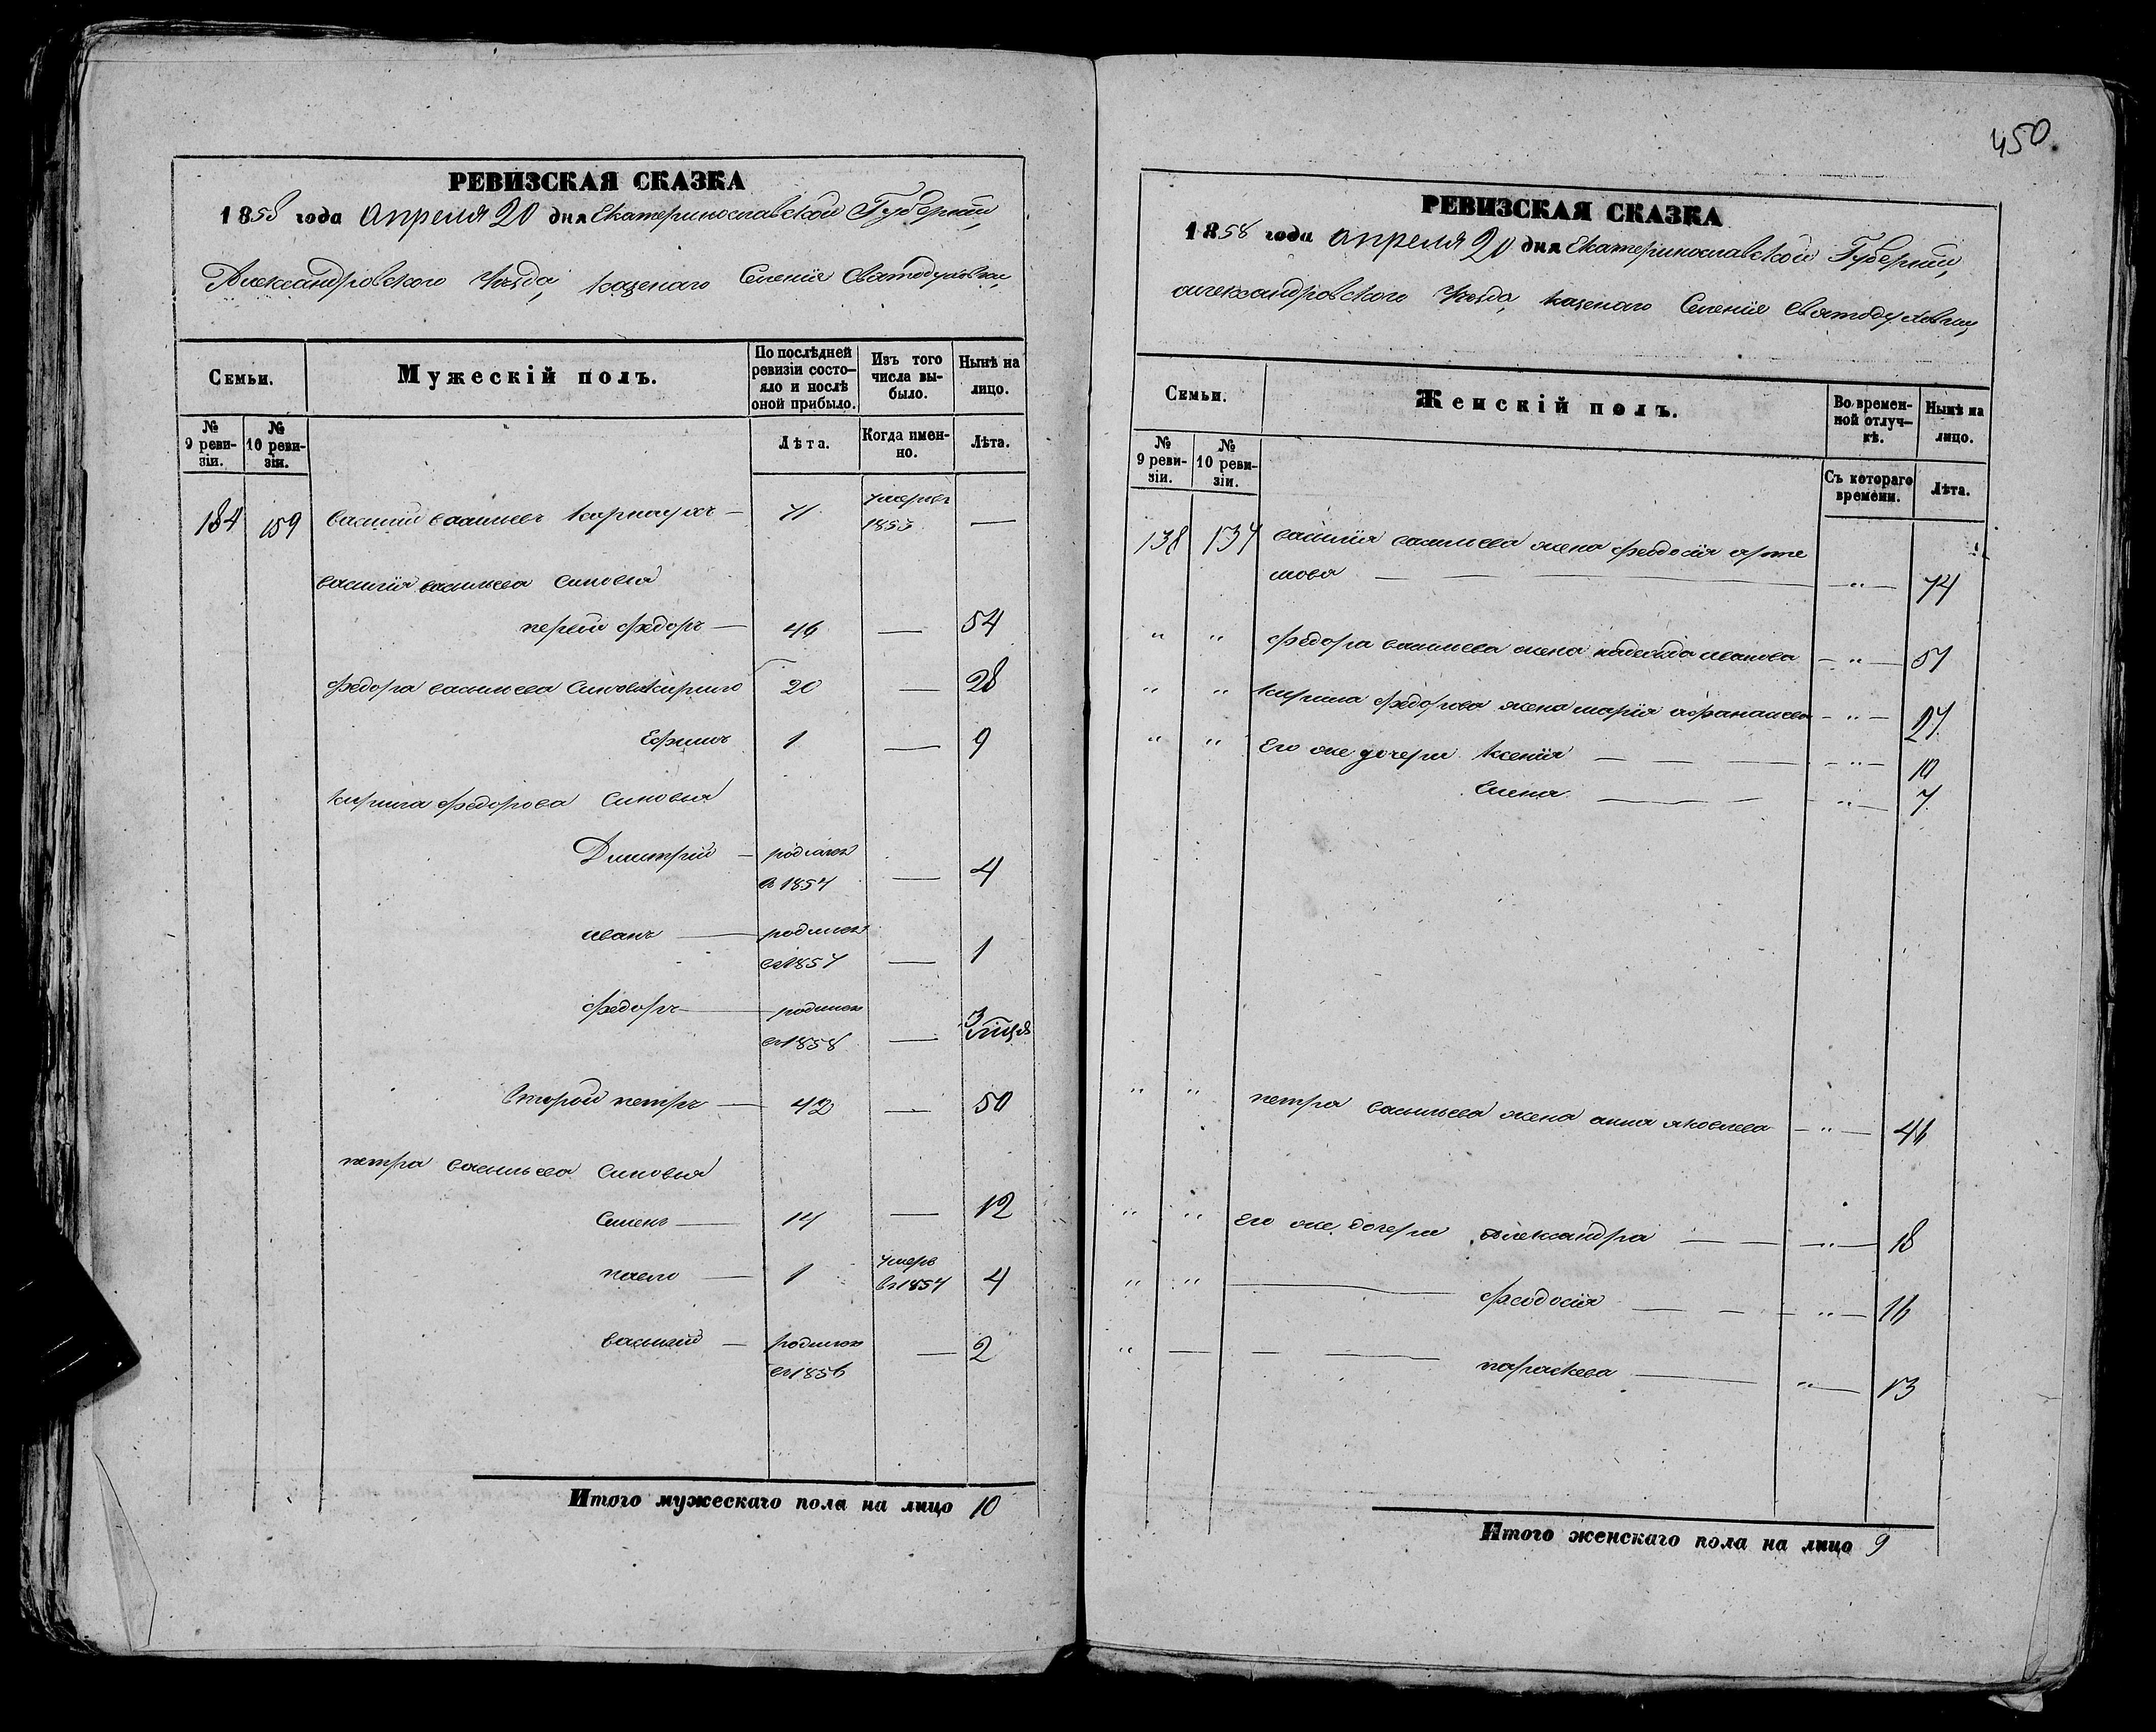 450
РЕВИЗСКАЯ СКАЗКА
1858 года Апреля 20 дня Екатеринославской Губерніи,
Александровского Уезда, казенаго Селенія Святодуховки,
Семьи.
Мужескій полъ.
По послѣдней ревизіи состояло и послѣ оной прибыло.
Изъ того числа выбыло.
Нынѣ на лицо.
№ 9 ревизіи.
№ 10 ревизіи.
Лѣта.
Когда именно.
Лѣта.
184 159 василий васильевъ Карнаухъ — 71 умеръ 1853 —
василія васильева Синовья
первий федоръ — 46 — 54
федора васильева Синовья кирило 20 — 28
Ефимъ 1 — 9
кирила федорова Синовья
Димитрий — родился в 1854 — 4
иванъ — родился въ 1857 — 1
федоръ — родился въ 1858 — 3 мца
второй петръ — 42 — 50
петра васильева Синовья
Семенъ — 14 — 12
павло — 1 умеръ въ 1854 4
василий — родился въ 1856 — 2
Итого мужескаго пола на лицо 10
РЕВИЗСКАЯ СКАЗКА
1858 года апреля 20 дня Екатеринославской Губерніи,
александровского Уезда, казенаго Селенія Святодуховки,
Семьи.
Женскій полъ.
Во временной отлучкѣ.
Нынѣ на лицо.
№ 9 ревизіи.
№ 10 ревизіи.
Съ котораго времени.
Лѣта.
138 137 василія васильева жена феодосія арте
мова — — — — " — 74
" " федора васильева жена надежда иванова — " — 51
" " кирила федорова жена марія афанасиева — " — 27
" " Его же дочери Ксенія — — — — " — 10
Елена — — — — " — 7
" " петра васильева жена анна яковлева — " — 46
" " Его же дочери Александра — — — " — 18
" " — феодосія — — — " — 16
" — — — параскева — " — 13
Итого женскаго пола на лицо 9